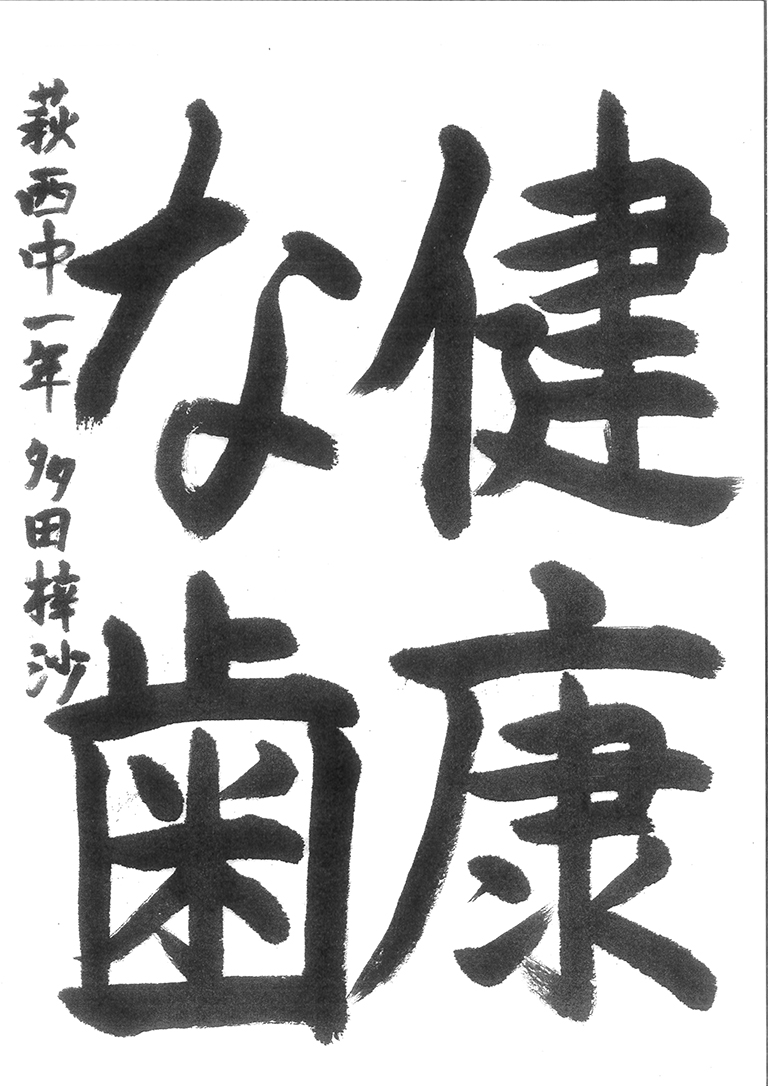 健康
な歯
萩西中一年 多田梓沙